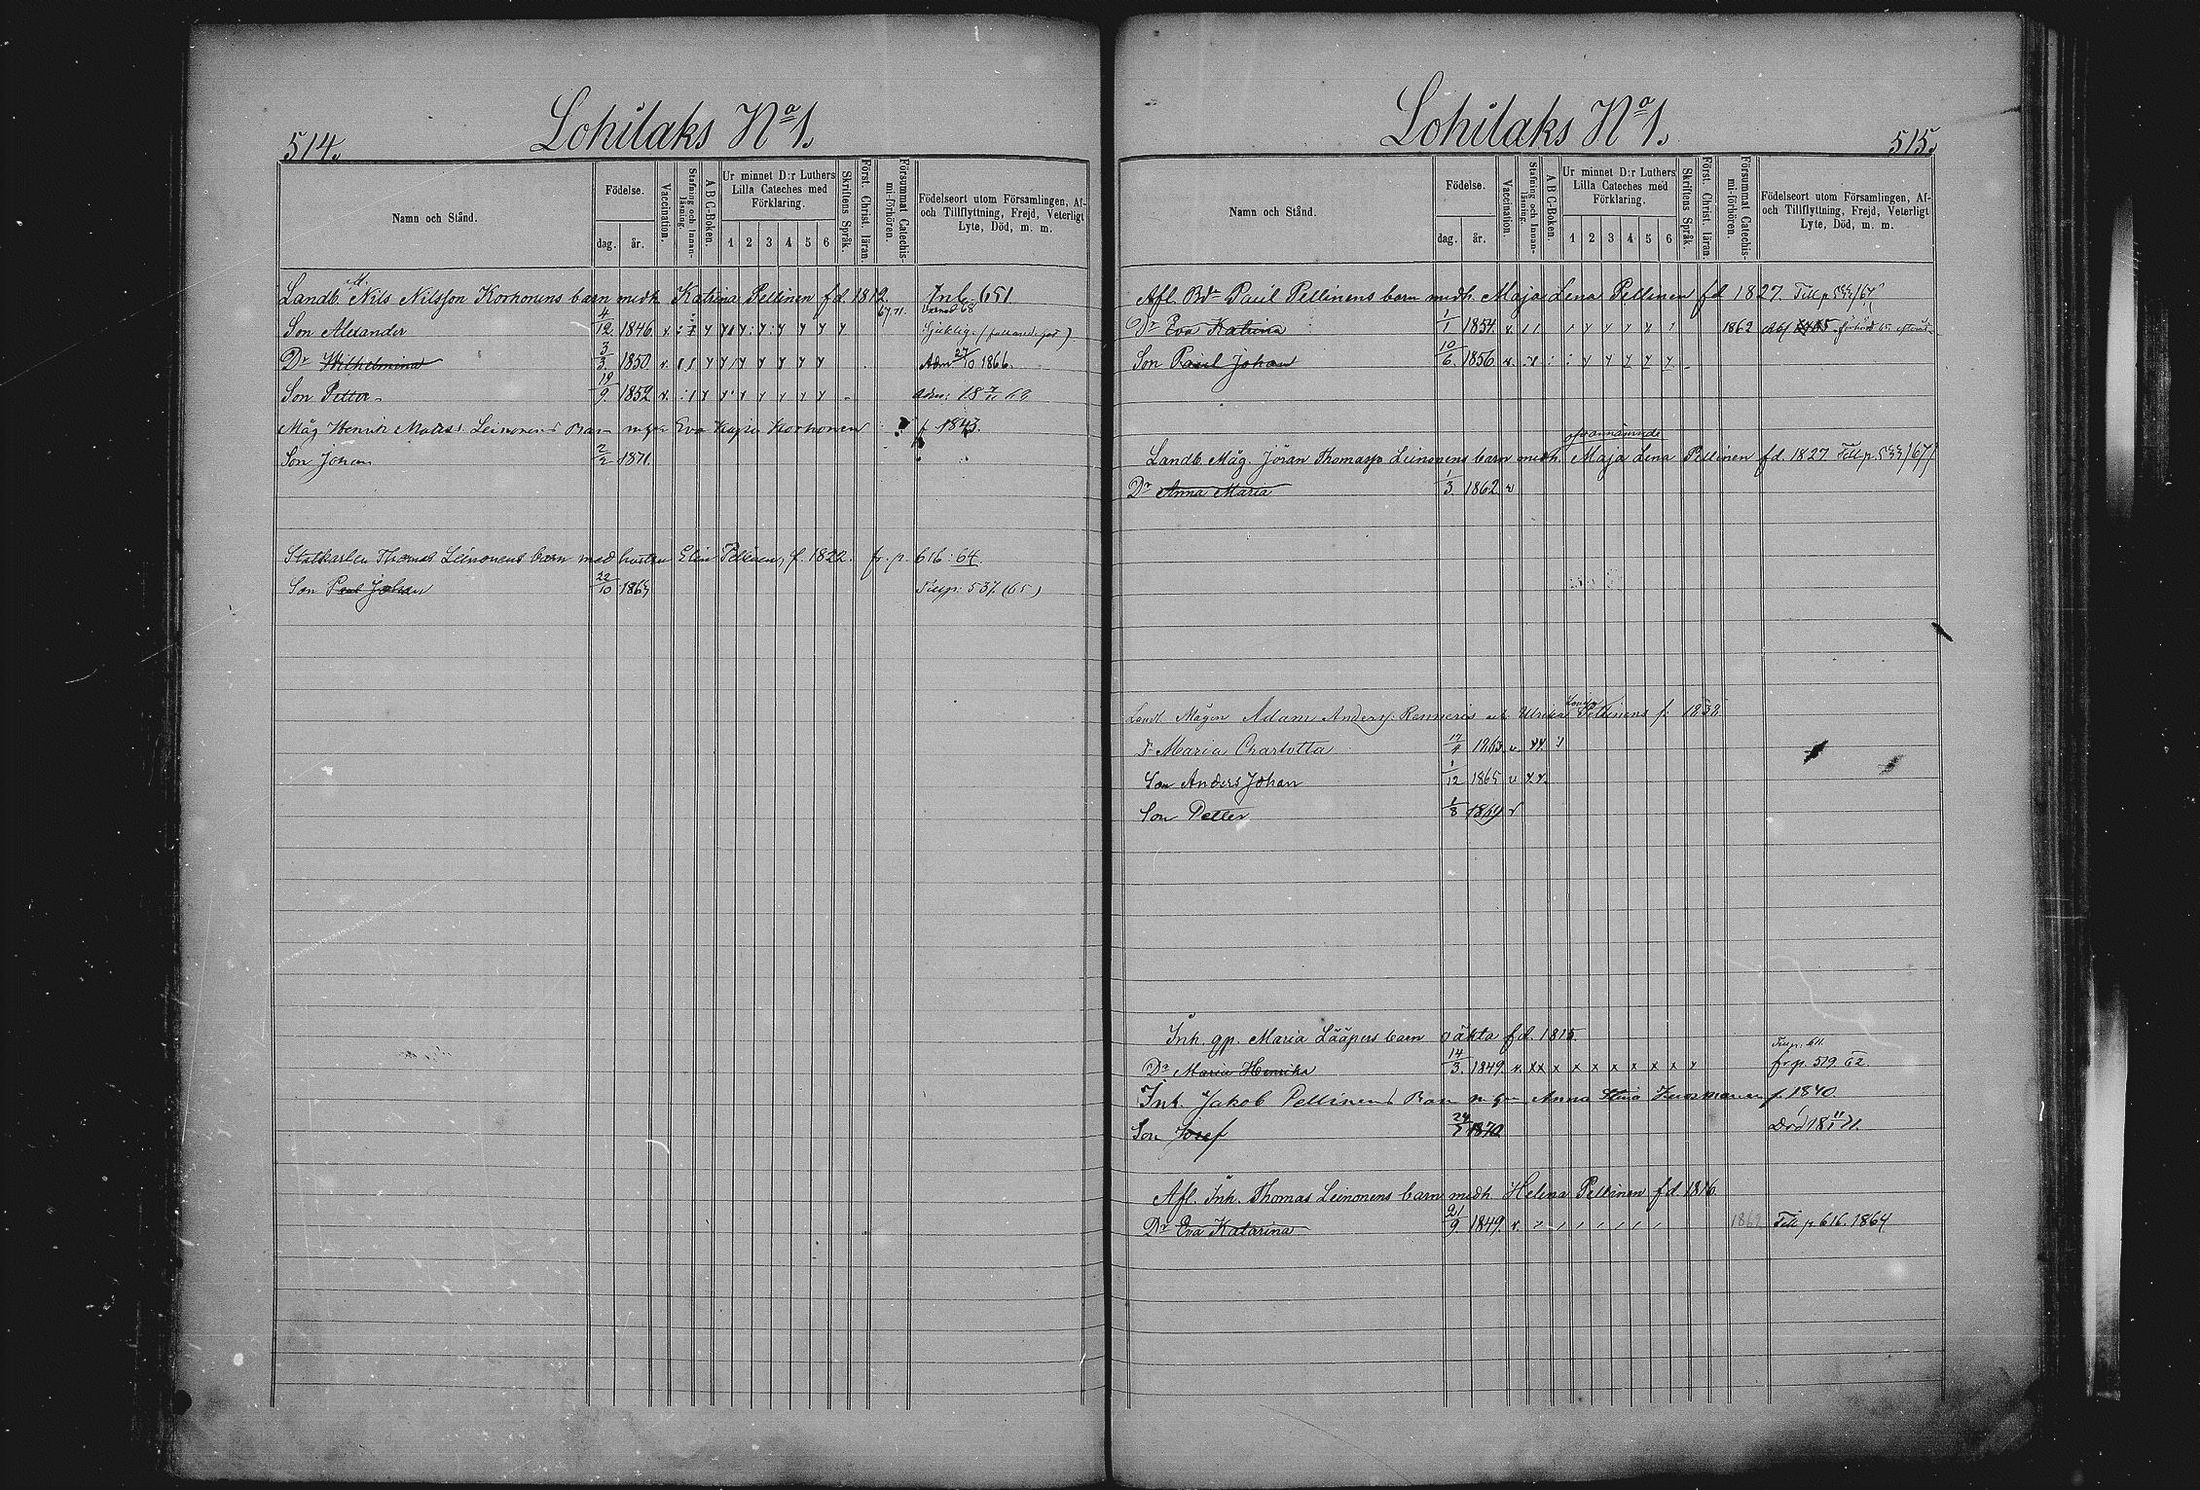 514.
Lohilaks No 1.
Namn och Stånd.
Födelse.
dag.
år.
Vaccination.
Stafning och Innan-läsning.
A B C-Boken.
Ur minnet D:r Luthers
Lilla Cateches med
Förklaring.
1 2 3 4 5 6
Skriftens Språk.
Först. Christ. läran.
Försummat Catechis-mi-förhören.
Födelseort utom Församlingen, Af-
och Tillflyttning, Frejd, Veterligt
Lyte, Död, m. m.
Landb Nils Nilsson Korhonens barn medh. Katrina Pellinen f.d. 1812. Inl. 651.
Son Alexander 4/12. 1846 v. Sjuklig.
Dr Wilhelmina 3/3. 1850 v. Adm 27/10 1866.
Son Petter 19/9. 1852 v.
Måg Henrik Matts. Leinonens Barn Eva Kajsa Korhonen f 1843.
Son Johan 2/2 1871.
Statkarlen Thomas Leinonens barn med hustru Elin Pellinen, f. 1822. fr. p. 616. 64.
Son Paul Johan 22/10 1863 537. (65)
Lohilaks No 1.
515.
Namn och Stånd.
Födelse.
dag.
år.
Vaccination.
Stafning och Innan-läsning.
A B C-Boken.
Ur minnet D:r Luthers
Lilla Cateches med
Förklaring.
1 2 3 4 5 6
Skriftens Språk.
Först. Christ. läran.
Försummat Catechis-mi-förhören.
Födelseort utom Församlingen, Af-
och Tillflyttning, Frejd, Veterligt
Lyte, Död, m. m.
Afl. Paul Pellinens barn medh. Maja Lena Pellinen f.d 1827.
Dr Eva Katrina 1/1 1854 v. 1862
Son Paul Johan 10/6. 1856 v.
ofvannämnde
Landb. Måg. Jöran Thomass Leinonens barn medh. Maja Lena Pellinen f.d. 1827
Dr Anna Maria 1/3. 1862 v
Landb. Mågen Adam Anders. Ulrika Pellinens f. 1838
Dr Maria Charlotta
Son Anders Johan 1/12 1865 v
Son Petter 1/8 v
Inh. gp. Maria Lääperis barn oäkta f.d. 1815
Dr Maria Henrika 14/3. 1849. v. x x x x x x x x fr. p. 519. 62.
Inh. Jakob Pellinens Barn Anna Stina f. 1840.
Son Josef 1870 Död
Afl. Inh. Thomas Leinonens barn medh. Helena Pellinen f.d 1816
Dr Eva Katarina 21/9. 1849. v. Till p. 616. 1864.